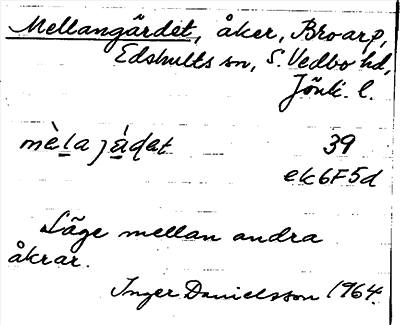 Mellangärdet, åker, Broarp,
Edshults sn, S. Vedbo hd,
Jönk. l.
mèlajádat 39
ek6F5d
Läge mellan andra
åkrar.
Inger Danielsson 1964.